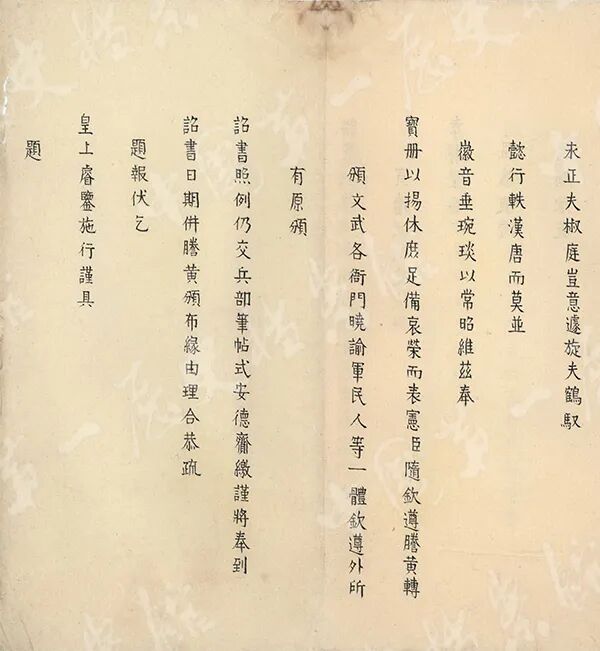 未正夫椒庭豈意遽旋夫鶴馭
懿行軼漢唐而莫並
徽音垂琬琰以常昭維茲奉
寶冊以揚休庶足備哀榮而表憲臣隨欽遵謄黃轉
頒文武各衙門曉諭軍民人等一體欽遵外所
有原頒
詔書照例仍交兵部筆帖式安德齋繳謹將奉到
詔書日期併謄黃頒布緣由理合恭疏
題報伏乞
皇上睿鑒施行謹具
題